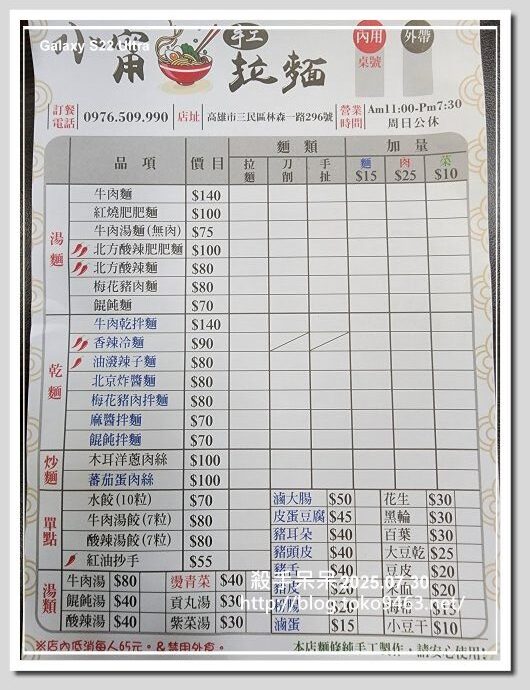 Galaxy S22 Ultra
小甯 手工拉麵
內用 外帶
桌號
訂餐電話 0976.509.990 店址 高雄市三民區林森一路296號 營業時間 Am11:00-Pm7:30
周日公休
品項 價目 麵類 加量
拉麵 刀削 手扯 麵$15 肉$25 菜$10
湯麵
牛肉麵 $140
紅燒肥肥麵 $100
牛肉湯麵(無肉) $75
北方酸辣肥肥麵 $100
北方酸辣麵 $80
梅花豬肉麵 $80
餛飩麵 $70
乾麵
牛肉乾拌麵 $140
香辣冷麵 $90
油潑辣子麵 $80
北京炸醬麵 $80
梅花豬肉拌麵 $80
麻醬拌麵 $70
餛飩拌麵 $70
炒麵
木耳洋蔥肉絲 $100
蕃茄蛋肉絲 $100
單點
水餃(10粒) $70 滷大腸 $50 花生 $30
牛肉湯餃(7粒) $80 皮蛋豆腐 $45 黑輪 $30
酸辣湯餃(7粒) $80 豬耳朵 $40 百葉 $30
紅油抄手 $55 豬頭皮 $40 大豆乾 $25
豬手 $40 豆皮 $20
湯類
牛肉湯 $80 燙青菜 $40 豬皮 $20 米血 $20
餛飩湯 $40 貢丸湯 $30 $20 $15
酸辣湯 $40 紫菜湯 $30 滷蛋 $15 小豆干 $10
殺手呆呆 2025.07.30
http://blog.yoko9463.net/
※店內低消每人65元。&禁用外食。 本店麵條純手工製作，請安心使用！